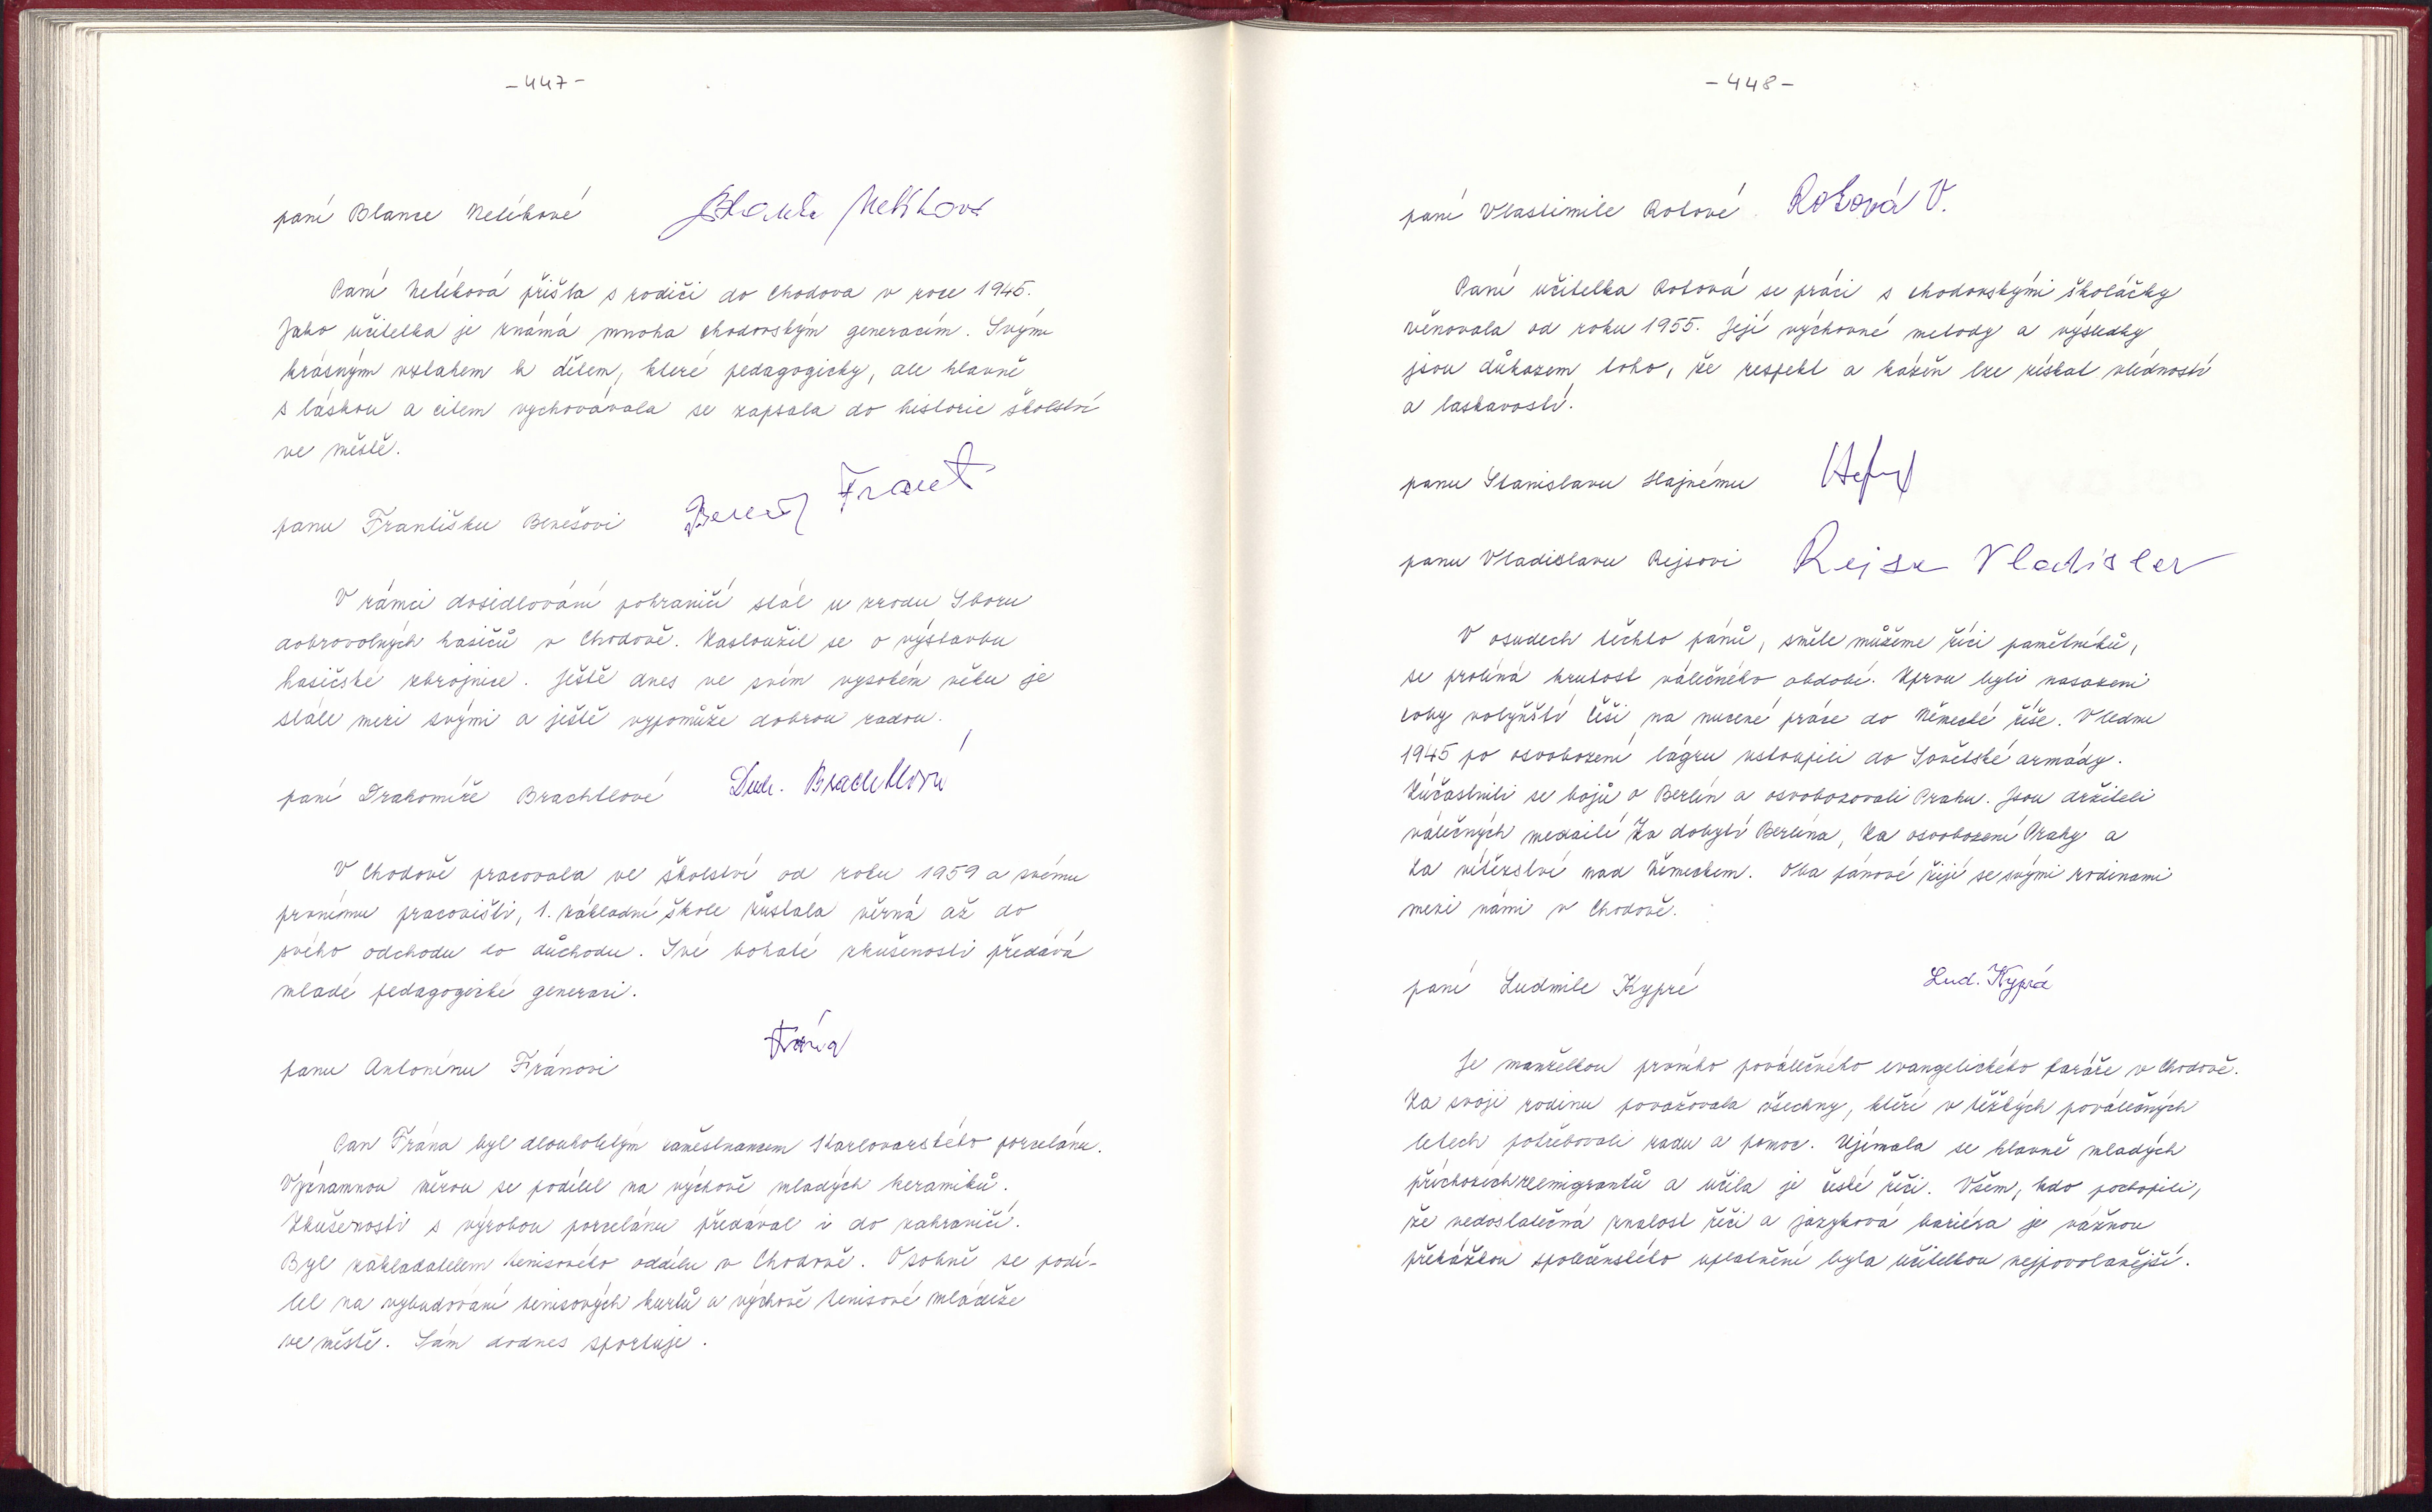 -447-
paní Blance Nelíkové
Paní Nelíková přišla s rodiči do Chodova v roce 1945.
Jako učitelka je známá mnoha chodovským generacím. Svým
krásným vztahem k dětem, které pedagogicky, ale hlavně
s láskou a citem vychovávala se zapsala do historie školství
ve městě.
panu Františku Benešovi Beneš Frant
V rámci dosidlování pohraničí stál u zrodu Sboru
dobrovolných hasičů v Chodově. Zasloužil se o výstavbu
hasičské zbrojnice. Ještě dnes ve svém vysokém věku je
stále mezi svými a ještě vypomůže dobrou radou.
paní Drahomíře Brachtlové Brachtlová
V Chodově pracovala ve školství od roku 1959 a svému
prvnímu pracovišti, 1. základní škole zůstala věrná až do
svého odchodu do důchodu. Své bohaté zkušenosti předává
mladé pedagogické generaci.
panu Antonínu Fránovi Frána
Pan Frána byl dlouholetým zaměstnancem Karlovarského porcelánu.
Významnou měrou se podílel na výchově mladých keramiků.
Zkušenosti s výrobou porcelánu předával i do zahraničí.
Byl zakladatelem tenisového oddílu v Chodově. Osobně se podí-
lel na vybudování tenisových kurtů a výchově tenisové mládeže
ve městě. Sám dodnes sportuje.
-448-
paní Vlastimile Rotové Rotová V.
Paní učitelka Rotová se práci s chodovskými školáčky
věnovala od roku 1955. Její výchovné metody a výsledky
jsou důkazem toho, že respekt a kázeň lze získat vlídností
a laskavostí.
panu Stanislavu Hajnému
panu Vladislavu Rejsovi Rejs Vladislav
V osudech těchto pánů, směle můžeme říci pamětníků,
se prolíná krutost válečného období. Zprvu byli nasazeni
coby volyňští Češi na nucené práce do Německé říše. V lednu
1945 po osvobození lágru vstoupili do Sovětské armády.
Zúčastnili se bojů o Berlín a osvobozovali Prahu. Jsou držiteli
válečných medailí Za dobytí Berlína, Za osvobození Prahy a
Za vítězství nad Německem. Oba pánové žijí se svými rodinami
mezi námi v Chodově.
paní Ludmile Kypré Lud. Kyprá
Je manželkou prvního poválečného evangelického faráře v Chodově.
Za svoji rodinu považovala všechny, kteří v těžkých poválečných
letech potřebovali radu a pomoc. Ujímala se hlavně mladých
příchozích reemigrantů a učila je české řeči. Všem, kdo pochopili,
že nedostatečná znalost řeči a jazyková bariéra je vážnou
překážkou společenského uplatnění byla učitelkou nejpovolanější.